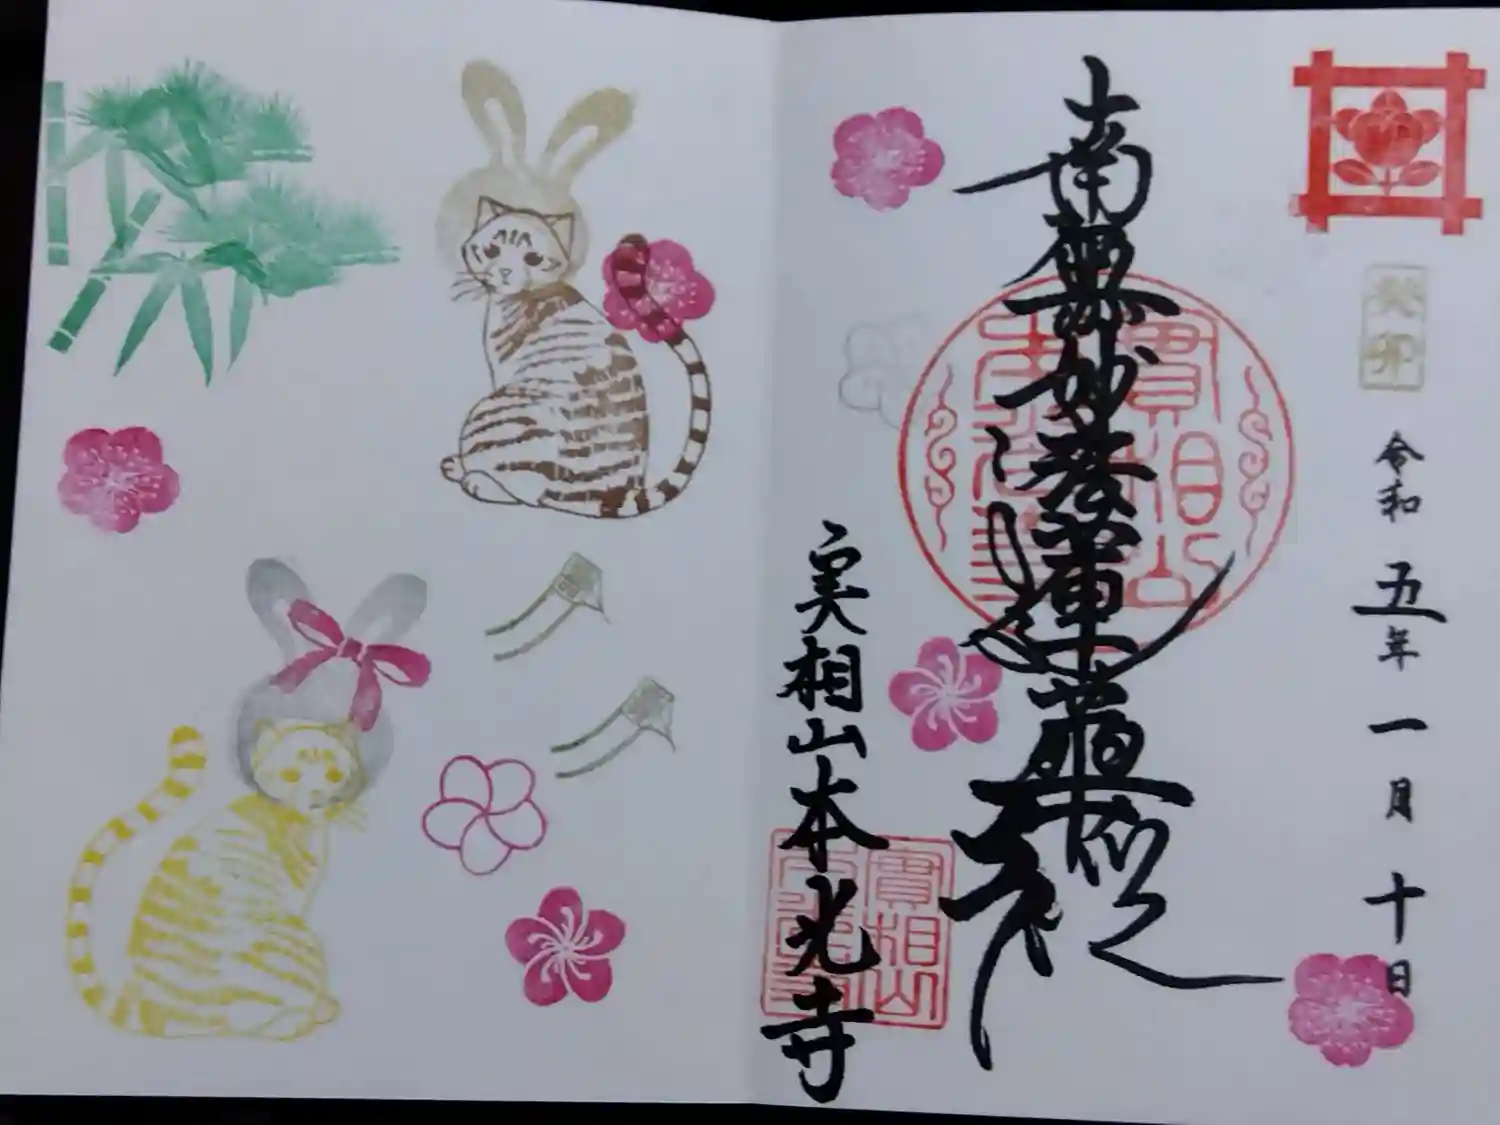 癸卯
令和五年一月十日
南無妙法蓮華経
実相山
本光寺
實相山